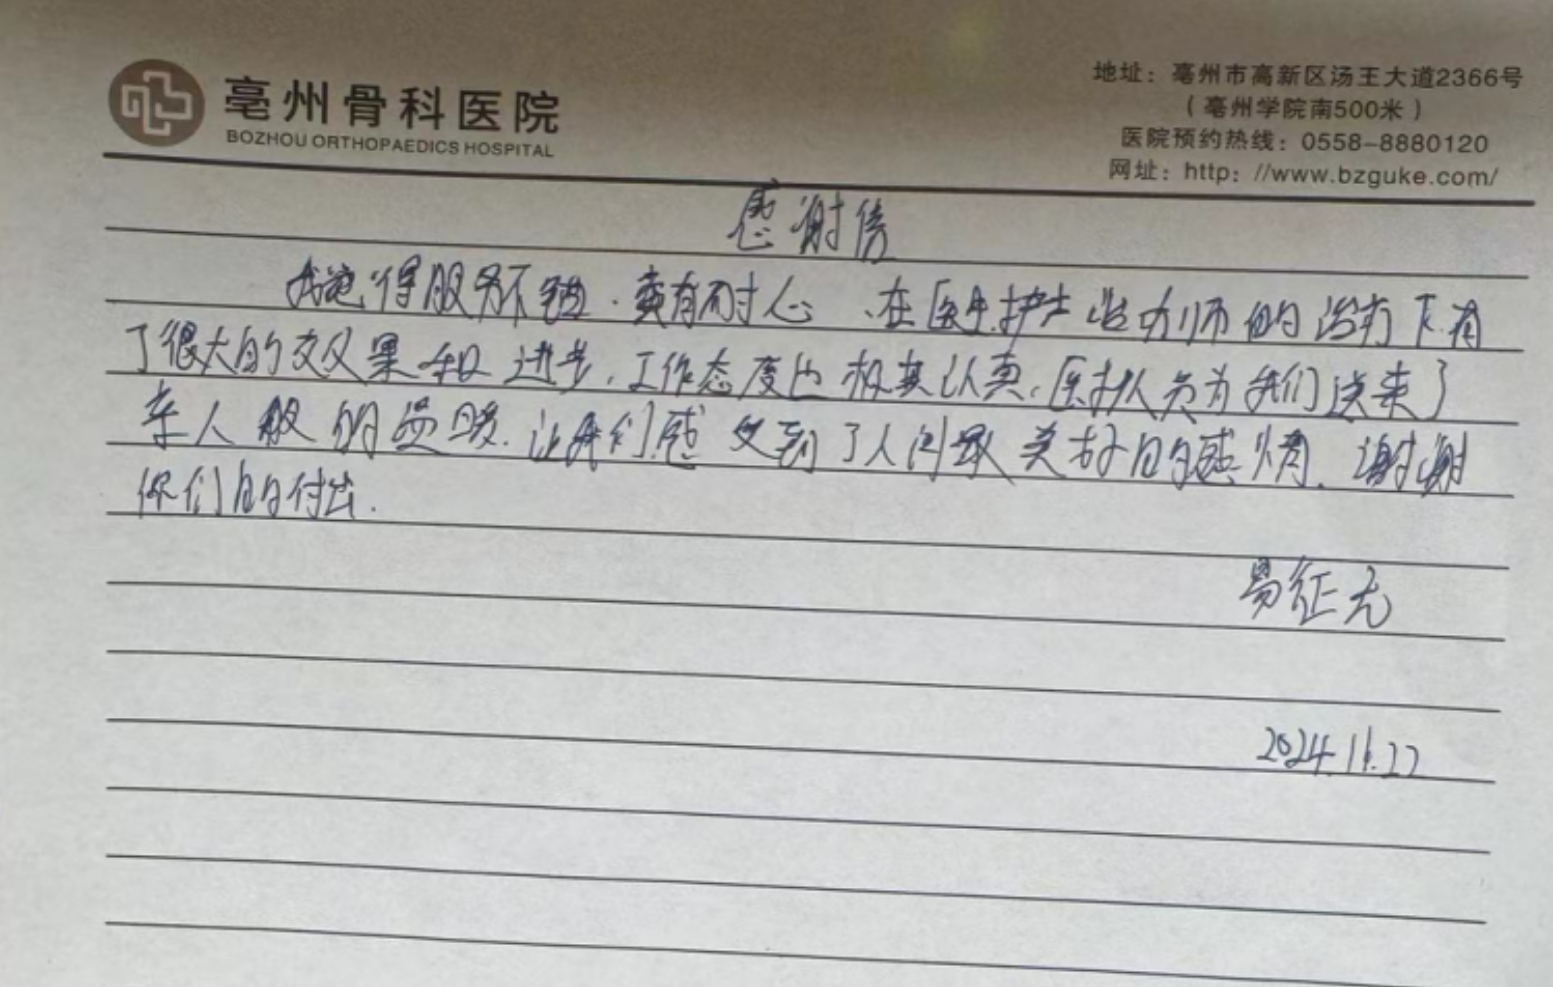 亳州骨科医院
BOZHOU ORTHOPAEDICS HOSPITAL
地址：亳州市高新区汤王大道2366号
（亳州学院南500米）
医院预约热线：0558-8880120
网址：http：//www.bzguke.com/
感谢信
我觉得服务不错.真有耐心、在医生护士 功师的治疗下.有
了很大的效果和进步.工作态度也极其认真.医护人员为我们送来了
亲人般的温暖.让我们感受到了人间最美好的感情.谢谢
你们的付出.
易征
2024.11.22